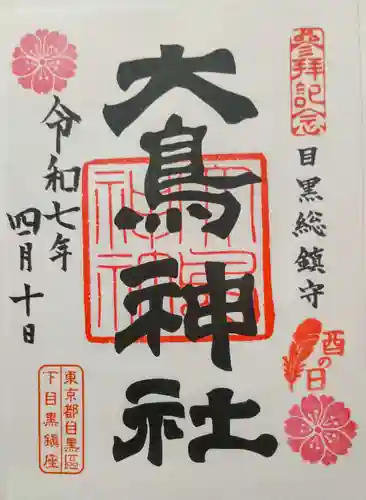 参拝記念
目黒総鎮守
酉の日
大鳥神社
令和七年
四月十日
東京都目黒區
下目黒鎮座